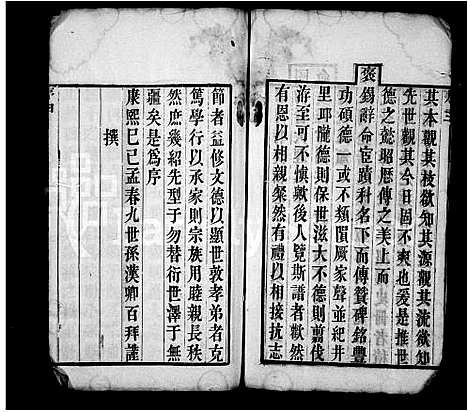 其本觀其枝欲知其源觀其流欲知
先世觀其今日固不爽也爰是推世
德之懿昭歷傳之美上而
褒錫辭命宦蹟科名下而傳贊碑銘豐
功碩德一或不類閴厥家聲並紀井
里耶隴德則保世滋大不德則翦伐
游至可不懷歟後人覽斯譜者歡然
有恩以相親粲然有禮以相接抗志
節者益修文德以顯世敦孝弟者克
篤學行以承家則宗族用睦親長秩
然庶幾紹先型于勿替衍世澤于無
疆矣是為序
康熙巳巳孟春九世孫漢卿百拜謹
撰